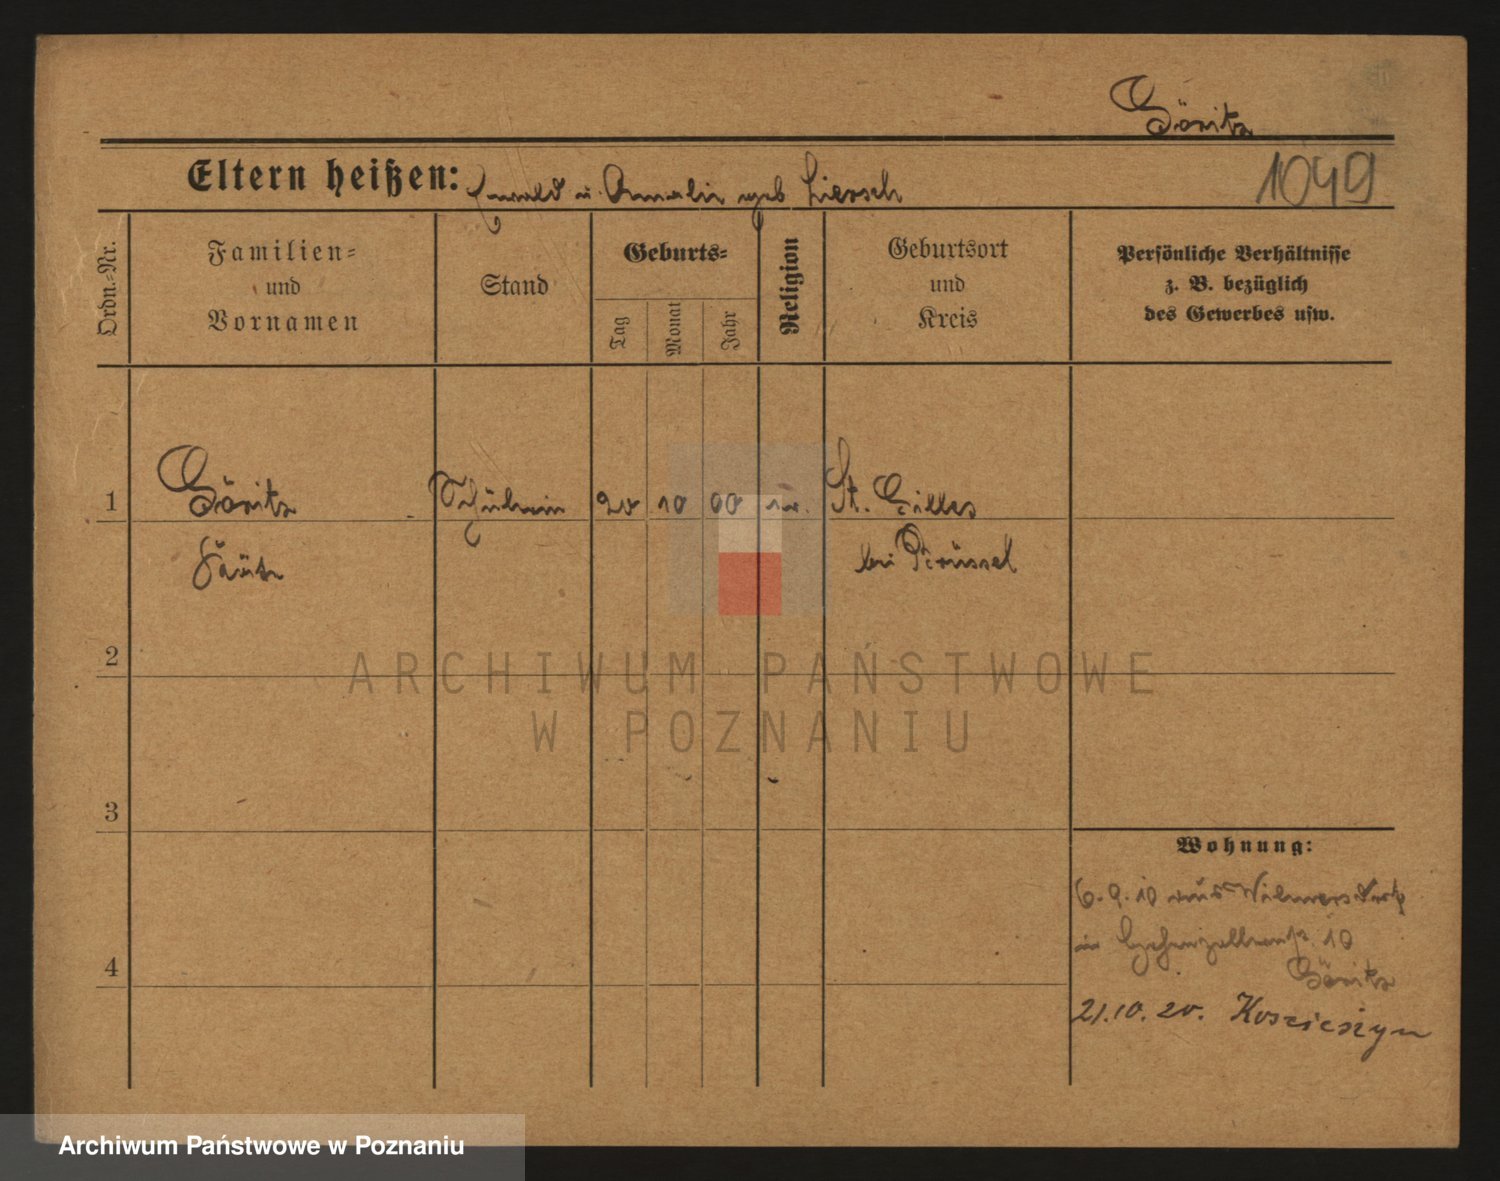 Göritz
Eltern heißen: Ewald u. Amalie geb. Liersch
1049
Ordn.-Nr.
Familien-
und
Vornamen
Stand
Geburts-
Tag
Monat
Jahr
Religion
Geburtsort
und
Kreis
Persönliche Verhältnisse
z. B. bezüglich
des Gewerbes usw.
1 Göritz Schülerin 20 10 00 St. Gilles
bei Brüssel
2
ARCHIWUM PAŃSTWOWE
W POZNANIU
3
Wohnung:
6.9.10 aus Wilmersdorf
in Hohenzollernstr. 10
4
Göritz
21.10.20. Kosciczyn
Archiwum Państwowe w Poznaniu